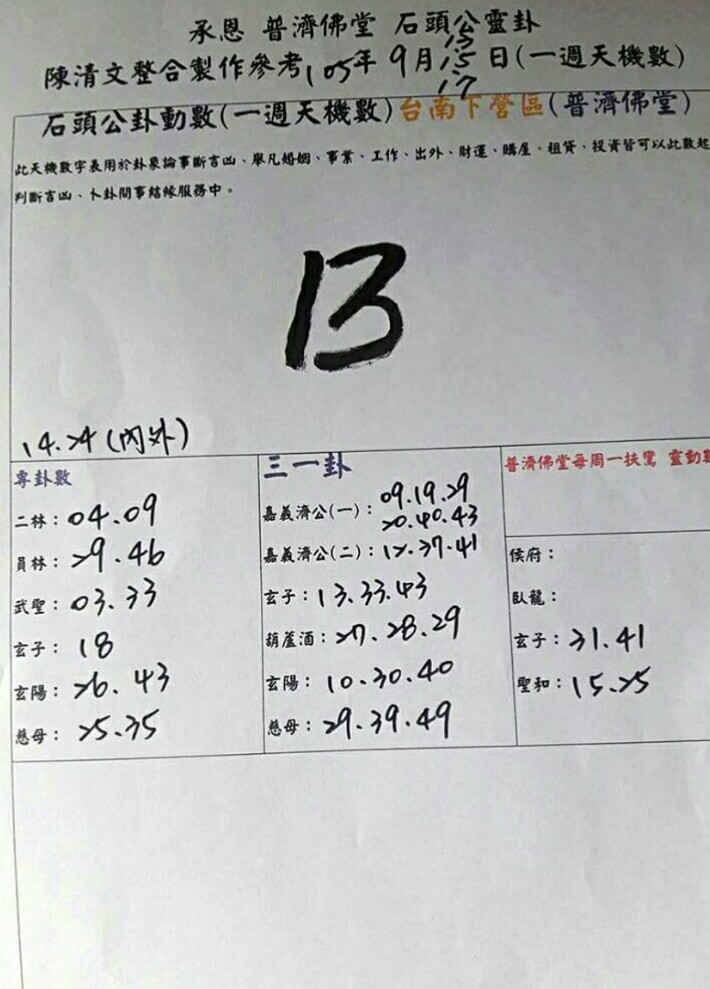 承恩 普濟佛堂 石頭公靈卦
13
陳清文整合製作參考105年 9月15日(一週天機數)
17
石頭公卦動數(一週天機數)台南下營區(普濟佛堂)
此天機數字表用於卦象論事斷吉凶、舉凡婚姻、事業、工作、出外、財運、購屋、租賃、投資皆可以此數起
判斷吉凶、卜卦問事結緣服務中。
13
14.24(內外)
專卦數
二林：04.09
員林：29.46
武聖：03.33
玄子：18
玄陽：26.43
慈母：25.35
三一卦
嘉義濟公(一)：09.19.29
20.40.43
嘉義濟公(二)：12.37.41
玄子：13.33.43
葫蘆酒：27.28.29
玄陽：10.30.40
慈母：29.39.49
普濟佛堂每周一扶鸞 靈動數
侯府：
臥龍：
玄子：31.41
聖和：15.25